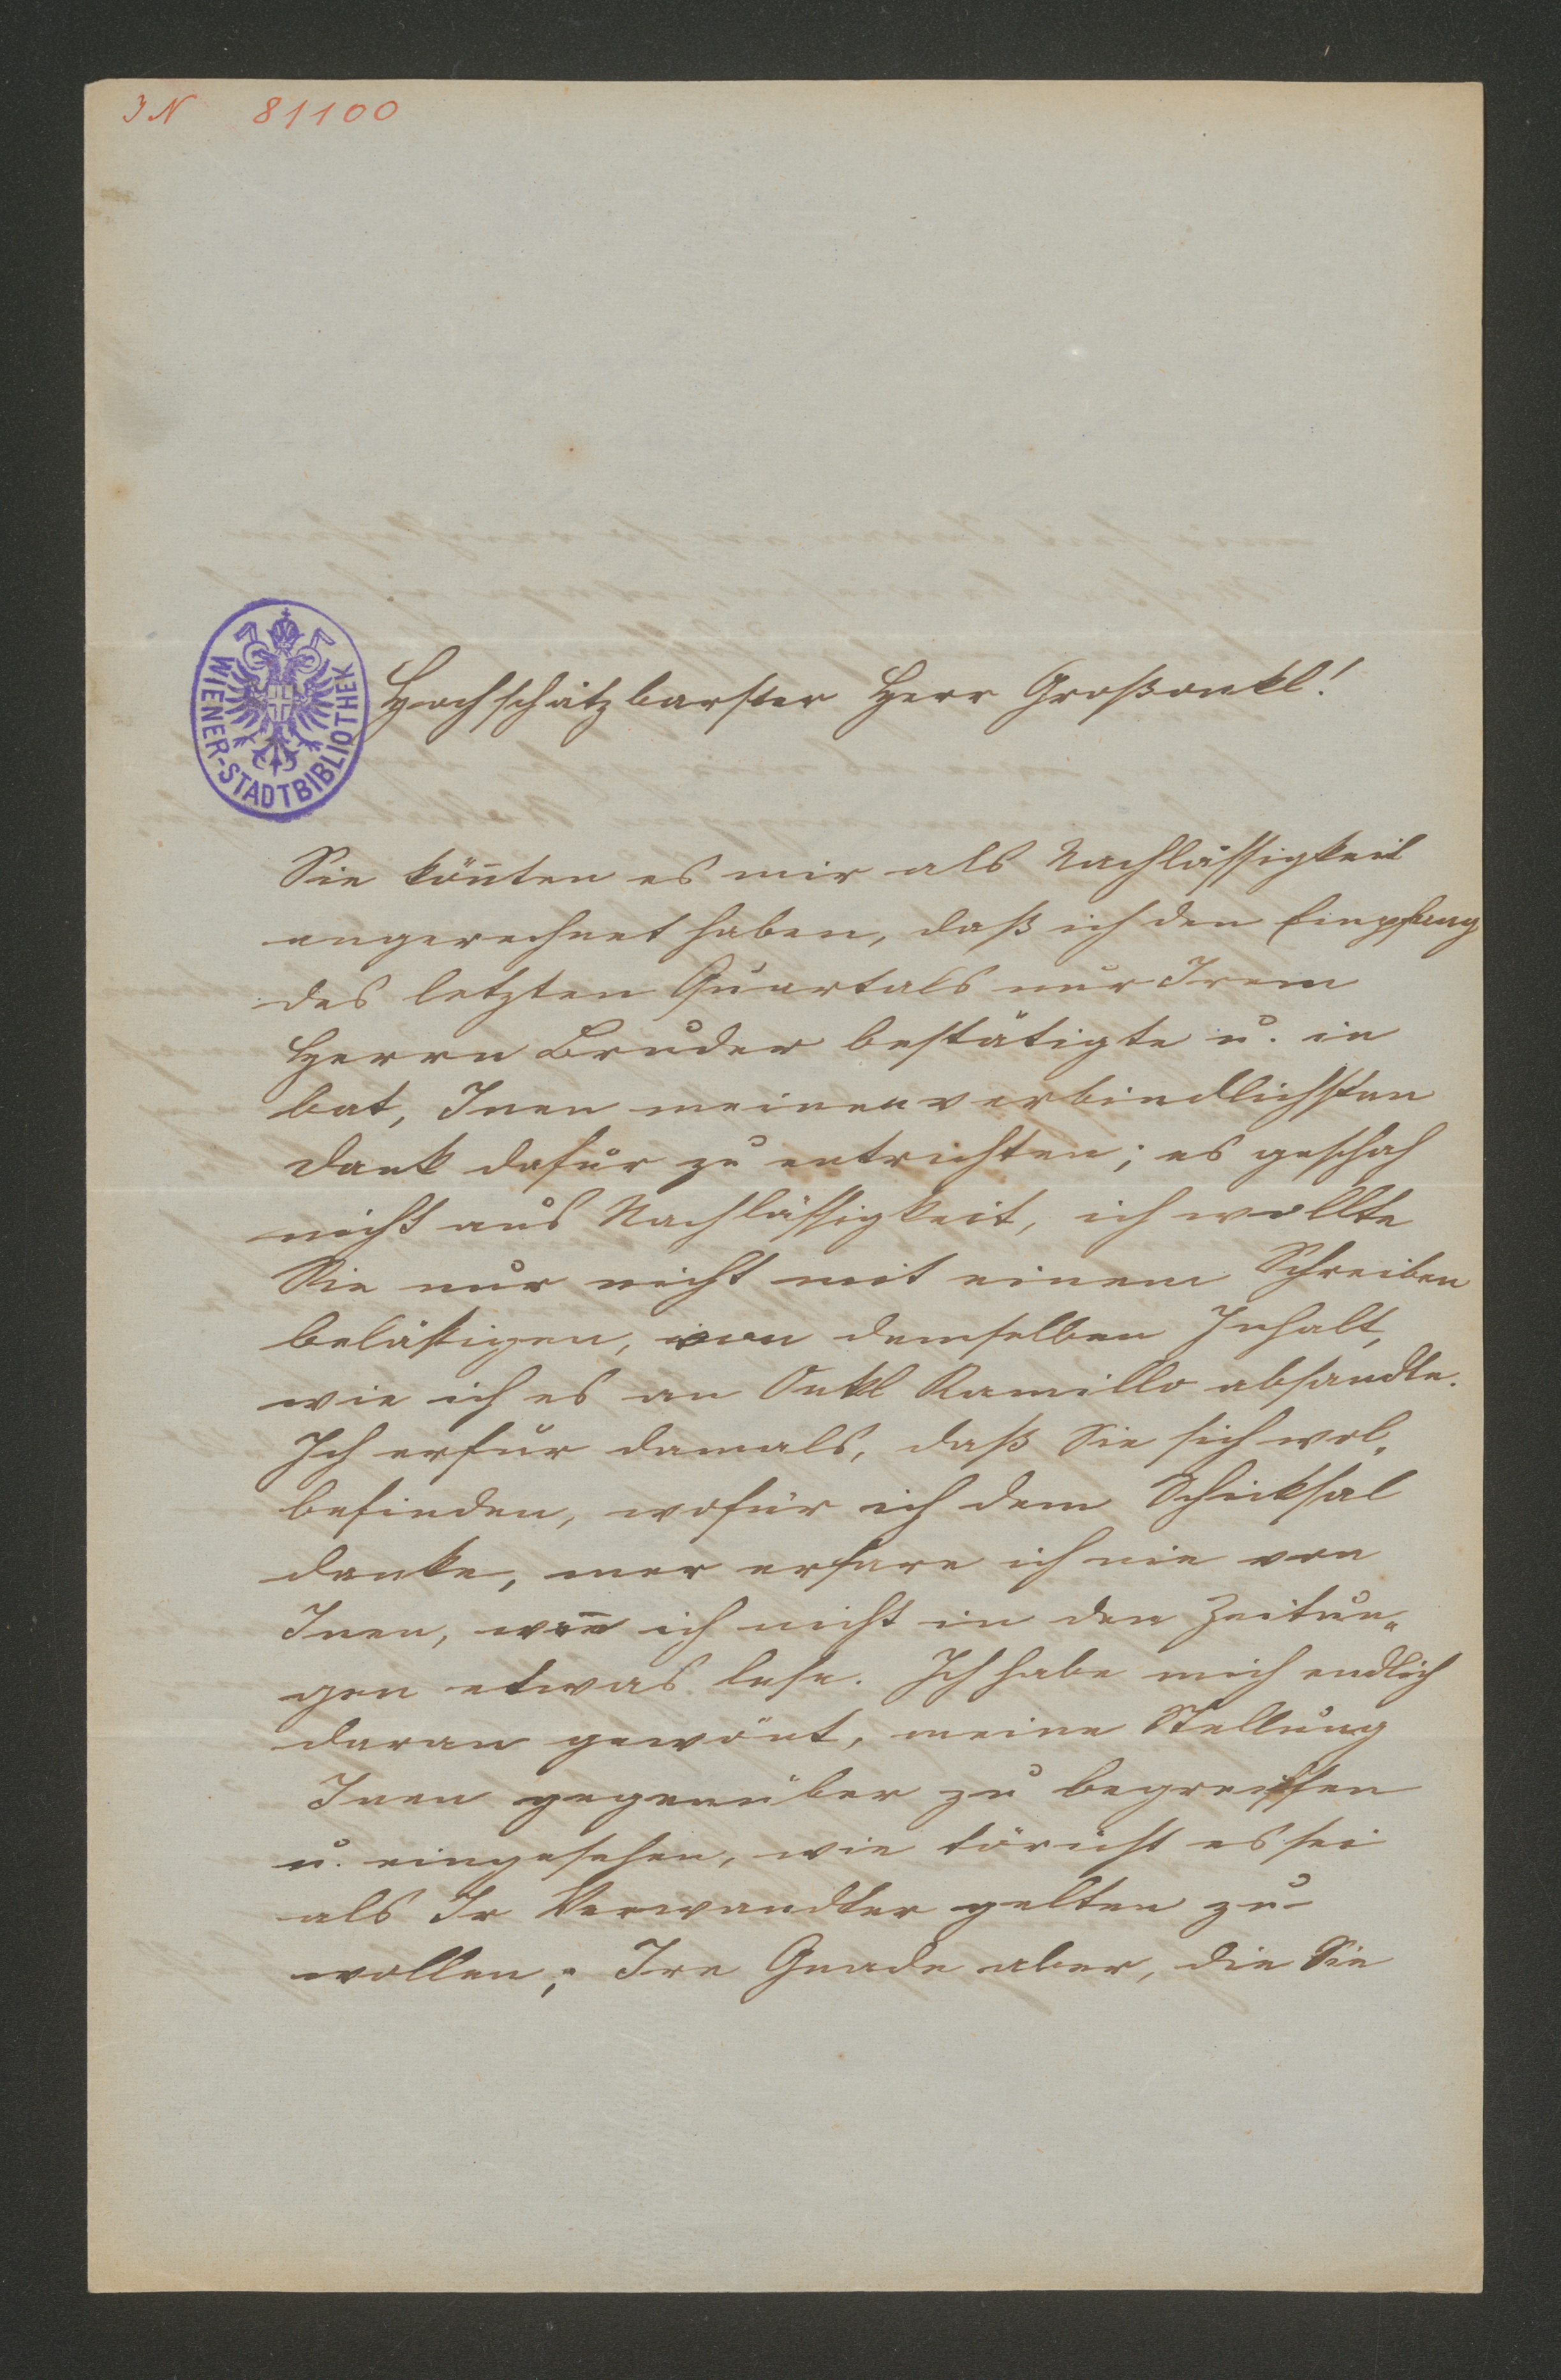 IN 81100
WIENER-STADTBIBLIOTHEK
Hochschätzbarster Herr Großonkl!
Sie kön̄ten es mir als Nachlässigkeit
angerechnet haben, daß ich den Empfang
des letzten Quartals nur Irem
Herrn Bruder bestätigte u. in
bat, Inen meinen verbindlichsten
Dank dafür zu entrichten; es geschah
nicht aus Nachlässigkeit, ich wollte
Sie nur nicht mit einem Schreiben
belästigen, von demselben Inhalt,
wie ich es an Onkl Kamillo absandte.
Ich erfur damals, daß Sie sich wol-
befinden, wofür ich dem Schicksal
danke, mer erfare ich nie von
Inen, wen̄ ich nicht in den Zeitun-
gen etwas lese. Ich habe mich endlich
daran gewönt, meine Stellung
Inen gegenüber zu begreiffen
u. eingesehen, wie töricht es sei
als Ir Verwandter gelten zu
wollen; Ire Gnade aber, die Sie